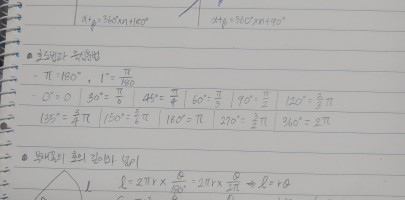 α+β=360°×n+180°
α+β=360°×n+90°
● 호도법과 육십분법
- π=180°, 1°=π/180
- 0°=0 | 30°=π/6 | 45°=π/4 | 60°=π/3 | 90°=π/2 | 120°=2/3π
135°=3/4π | 150°=5/6π | 180°=π | 270°=3/2π | 360°=2π
● 부채꼴의 호의 길이와 넓이
l
l=2πr× θ/180° =2πr× θ/2π → l=rθ